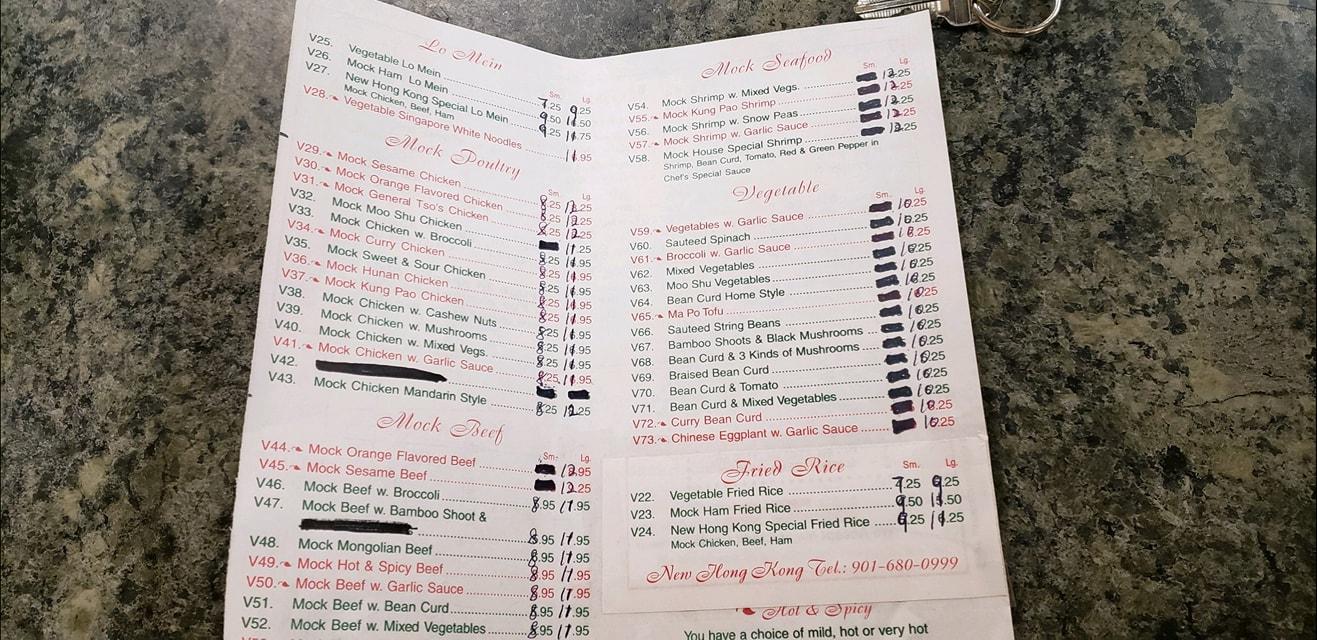 Lo Mein
Sm. Lg.
V25. Vegetable Lo Mein 7.25 9.25
V26. Mock Ham Lo Mein 9.50 11.50
V27. New Hong Kong Special Lo Mein 9.25 11.75
Mock Chicken, Beef, Ham
V28. Vegetable Singapore White Noodles 11.95
Mock Poultry
Sm. Lg.
V29. Mock Sesame Chicken 8.25 12.25
V30. Mock Orange Flavored Chicken 8.25 12.25
V31. Mock General Tso's Chicken 8.25 12.25
V32. Mock Moo Shu Chicken 11.25
V33. Mock Chicken w. Broccoli 8.25 11.95
V34. Mock Curry Chicken 8.25 11.95
V35. Mock Sweet & Sour Chicken 8.25 11.95
V36. Mock Hunan Chicken 8.25 11.95
V37. Mock Kung Pao Chicken 8.25 11.95
V38. Mock Chicken w. Cashew Nuts 8.25 11.95
V39. Mock Chicken w. Mushrooms 8.25 11.95
V40. Mock Chicken w. Mixed Vegs. 8.25 11.95
V41. Mock Chicken w. Garlic Sauce 8.25 11.95
V42.
V43. Mock Chicken Mandarin Style 8.25 12.25
Mock Beef
Sm. Lg.
V44. Mock Orange Flavored Beef 12.95
V45. Mock Sesame Beef 12.25
V46. Mock Beef w. Broccoli 8.95 11.95
V47. Mock Beef w. Bamboo Shoot &
8.95 11.95
V48. Mock Mongolian Beef 8.95 11.95
V49. Mock Hot & Spicy Beef 8.95 11.95
V50. Mock Beef w. Garlic Sauce 8.95 11.95
V51. Mock Beef w. Bean Curd 8.95 11.95
V52. Mock Beef w. Mixed Vegetables 8.95 11.95
Mock Seafood
Sm. Lg.
V54. Mock Shrimp w. Mixed Vegs. 12.25
V55. Mock Kung Pao Shrimp 12.25
V56. Mock Shrimp w. Snow Peas 12.25
V57. Mock Shrimp w. Garlic Sauce 12.25
V58. Mock House Special Shrimp 12.25
Shrimp, Bean Curd, Tomato, Red & Green Pepper in
Chef's Special Sauce
Vegetable
Sm. Lg.
V59. Vegetables w. Garlic Sauce 10.25
V60. Sauteed Spinach 10.25
V61. Broccoli w. Garlic Sauce 10.25
V62. Mixed Vegetables 10.25
V63. Moo Shu Vegetables 10.25
V64. Bean Curd Home Style 10.25
V65. Ma Po Tofu 10.25
V66. Sauteed String Beans 10.25
V67. Bamboo Shoots & Black Mushrooms 10.25
V68. Bean Curd & 3 Kinds of Mushrooms 10.25
V69. Braised Bean Curd 10.25
V70. Bean Curd & Tomato 10.25
V71. Bean Curd & Mixed Vegetables 10.25
V72. Curry Bean Curd 10.25
V73. Chinese Eggplant w. Garlic Sauce 10.25
Fried Rice
Sm. Lg.
V22. Vegetable Fried Rice 7.25 9.25
V23. Mock Ham Fried Rice 9.50 11.50
V24. New Hong Kong Special Fried Rice 9.25 11.25
Mock Chicken, Beef, Ham
New Hong Kong Tel.: 901-680-0999
Hot & Spicy
You have a choice of mild, hot or very hot